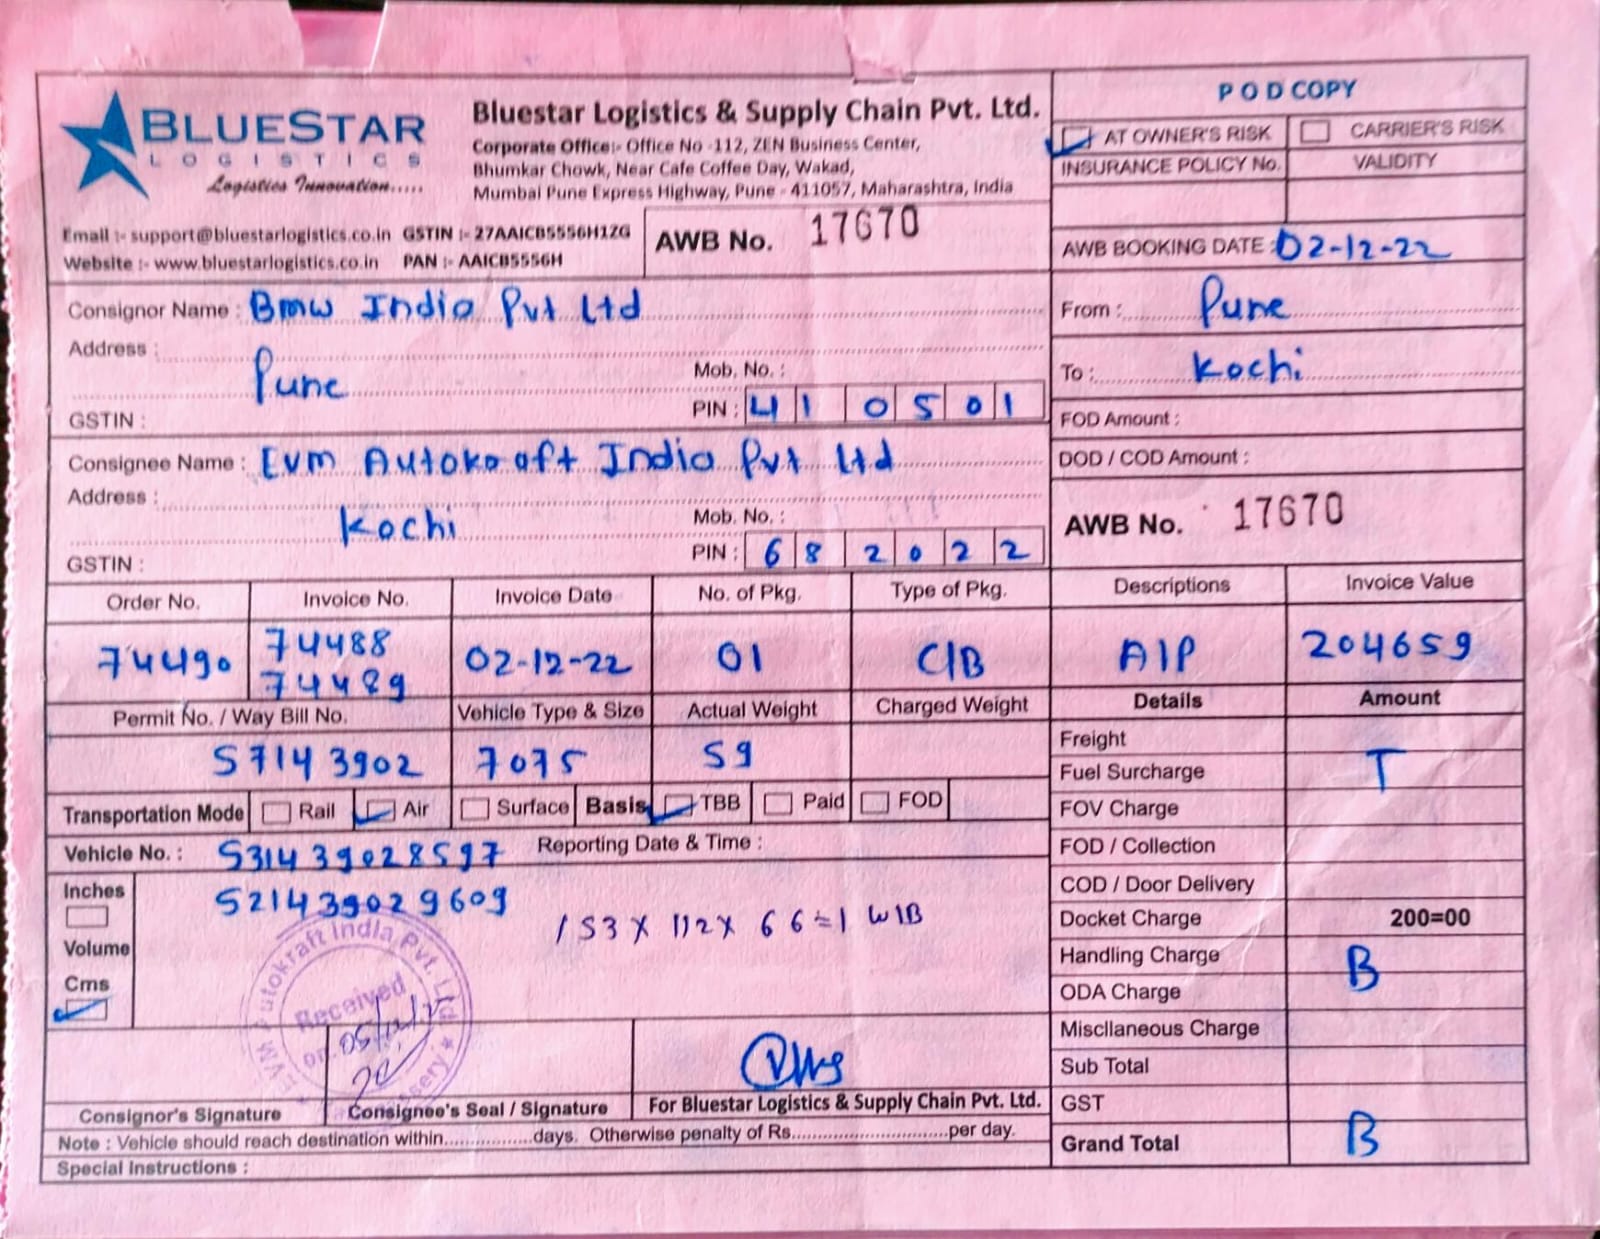 BLUESTAR
LOGISTICS
Logistics Innovation.....
Bluestar Logistics & Supply Chain Pvt. Ltd.
Corporate Office:- Office No -112, ZEN Business Center,
Bhumkar Chowk, Near Cafe Coffee Day, Wakad,
Mumbai Pune Express Highway, Pune - 411057, Maharashtra, India
Email :- support@bluestarlogistics.co.in GSTIN :- 27AAICB5556H1ZG
Website :- www.bluestarlogistics.co.in PAN :- AAICB5556H
AWB No. 17670
POD COPY
AT OWNER'S RISK CARRIER'S RISK
INSURANCE POLICY No. VALIDITY
AWB BOOKING DATE : 02-12-22
Consignor Name : Bmw India Pvt Ltd
Address :
Pune
Mob. No. :
GSTIN :
PIN : 410501
From : Pune
To : Kochi
FOD Amount :
DOD / COD Amount :
Consignee Name : Evm Autokraft India Pvt Ltd
Address :
Kochi
Mob. No. :
GSTIN :
PIN : 682022
AWB No. 17670
Order No. Invoice No. Invoice Date No. of Pkg. Type of Pkg. Descriptions Invoice Value
74490 74488 02-12-22 01 C/B A/P 204659
74489
Permit No. / Way Bill No. Vehicle Type & Size Actual Weight Charged Weight Details Amount
57143902 7075 59
Transportation Mode Rail Air Surface Basis TBB Paid FOD
Vehicle No. : 531439028597 Reporting Date & Time :
521439029609
Inches
Volume
Cms
153 X 112 X 66 = 1 W/B
Freight
Fuel Surcharge T
FOV Charge
FOD / Collection
COD / Door Delivery
Docket Charge 200=00
Handling Charge B
ODA Charge
Miscllaneous Charge
Sub Total
GST
Grand Total B
EVM Autokraft India Pvt. Ltd.
Received
on 05/12/
Consignor's Signature Consignee's Seal / Signature For Bluestar Logistics & Supply Chain Pvt. Ltd.
Note : Vehicle should reach destination within.................days. Otherwise penalty of Rs..............................per day.
Special Instructions :